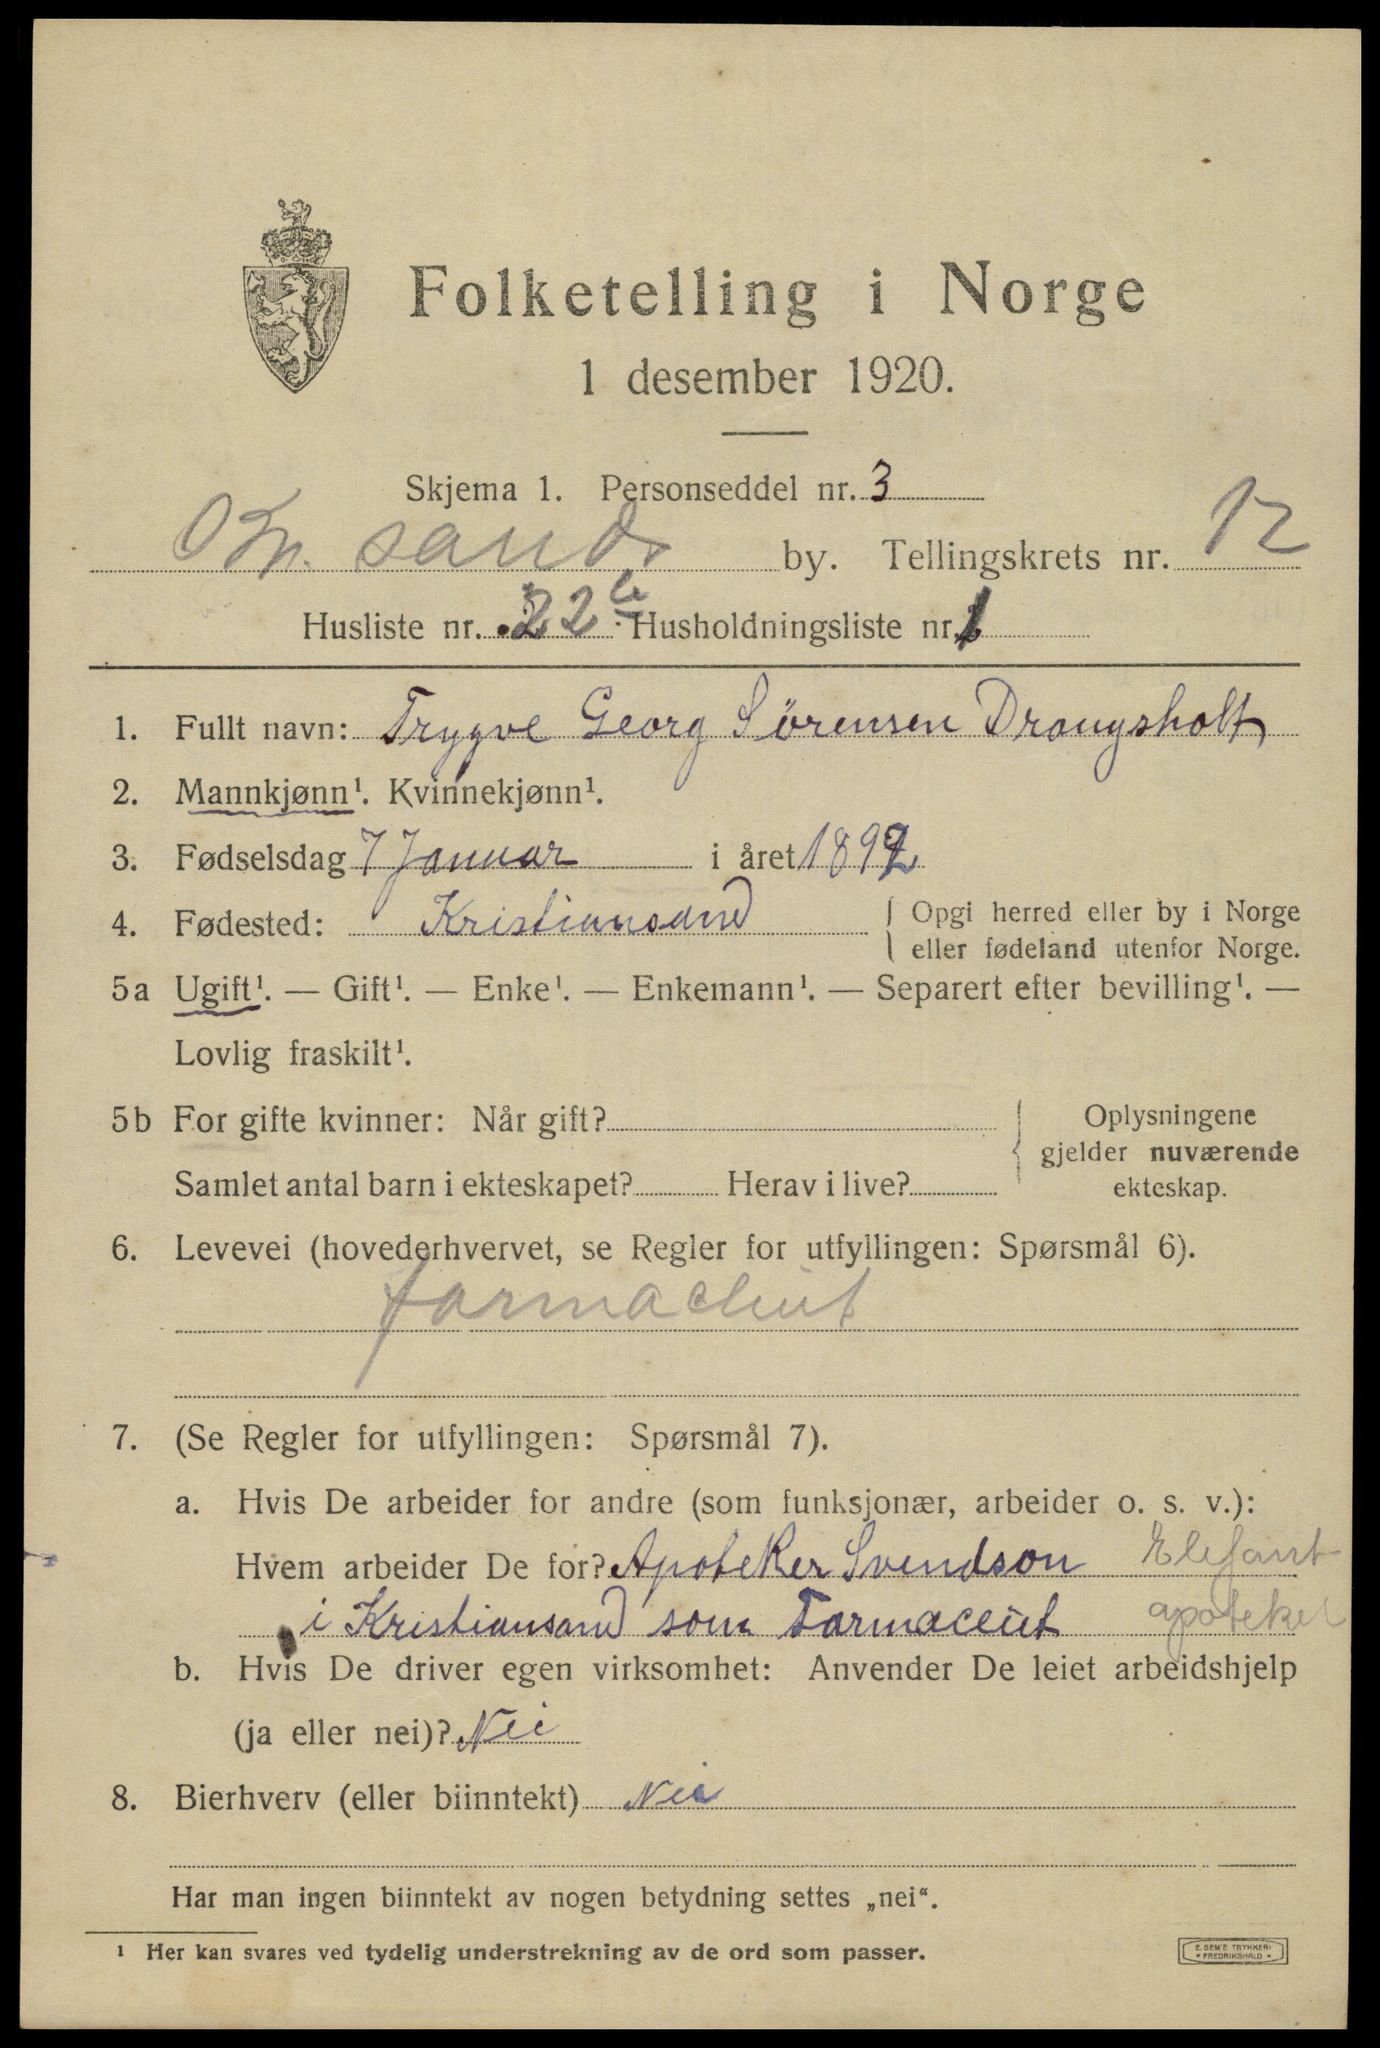 Folketelling i Norge
1 desember 1920.
Skjema 1. Personseddel nr. 3
Kr. sands by. Tellingskrets nr. 12
Husliste nr. 22 b Husholdningsliste nr. 1
1. Fullt navn: Trygve Georg Sörensen Drangsholt
2. Mannkjønn¹. Kvinnekjønn¹.
3. Fødselsdag 7 Januar i året 1892
4. Fødested: Kristiansand { Opgi herred eller by i Norge
eller fødeland utenfor Norge.
5a Ugift¹. — Gift¹. — Enke¹. — Enkemann¹. — Separert efter bevilling¹. —
Lovlig fraskilt¹.
5b For gifte kvinner: Når gift? { Oplysningene
gjelder nuværende
Samlet antal barn i ekteskapet? Herav i live? ekteskap.
6. Levevei (hovederhvervet, se Regler for utfyllingen: Spørsmål 6).
farmaceut
7. (Se Regler for utfyllingen: Spørsmål 7).
a. Hvis De arbeider for andre (som funksjonær, arbeider o. s. v.):
Hvem arbeider De for? Apoteker Svendson Elefant-
i Kristiansand som Farmaceut apoteket
b. Hvis De driver egen virksomhet: Anvender De leiet arbeidshjelp
(ja eller nei)? Nei
8. Bierhverv (eller biinntekt) Nei
Har man ingen biinntekt av nogen betydning settes „nei“.
¹ Her kan svares ved tydelig understrekning av de ord som passer.
E. SEM'S TRYKKERI
• FREDRIKSHALD •